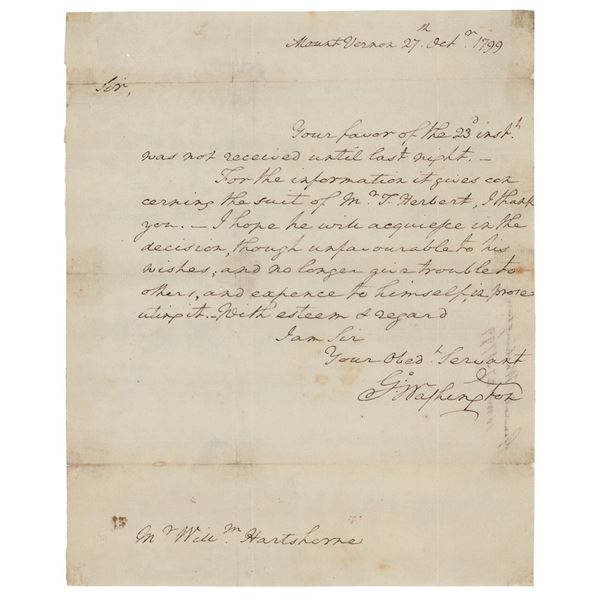 Mount Vernon 27th. Octr. 1799
Sir,
Your favor of the 23d instt.
was not received until last night. —
For the information it gives con
cerning the suit of Mr T. Herbert, I thank
you. — I hope he will acquiesce in the
decision, though unfavourable to his
wishes; and no longer give trouble to
others, and expence to himself, in prose
cuting it. — With esteem & regard
I am Sir
Your Obedt. Servant
Go: Washington
Mr Willm. Hartshorne